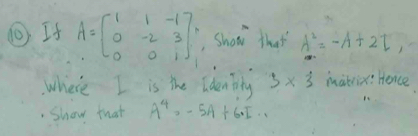 (10) If A = [1 1 -1; 0 -2 3; 0 0 1], show that A² = -A + 2I,
where I is the identity 3 x 3 matrix. Hence
. Show that A⁴ = -5A + 6.I..